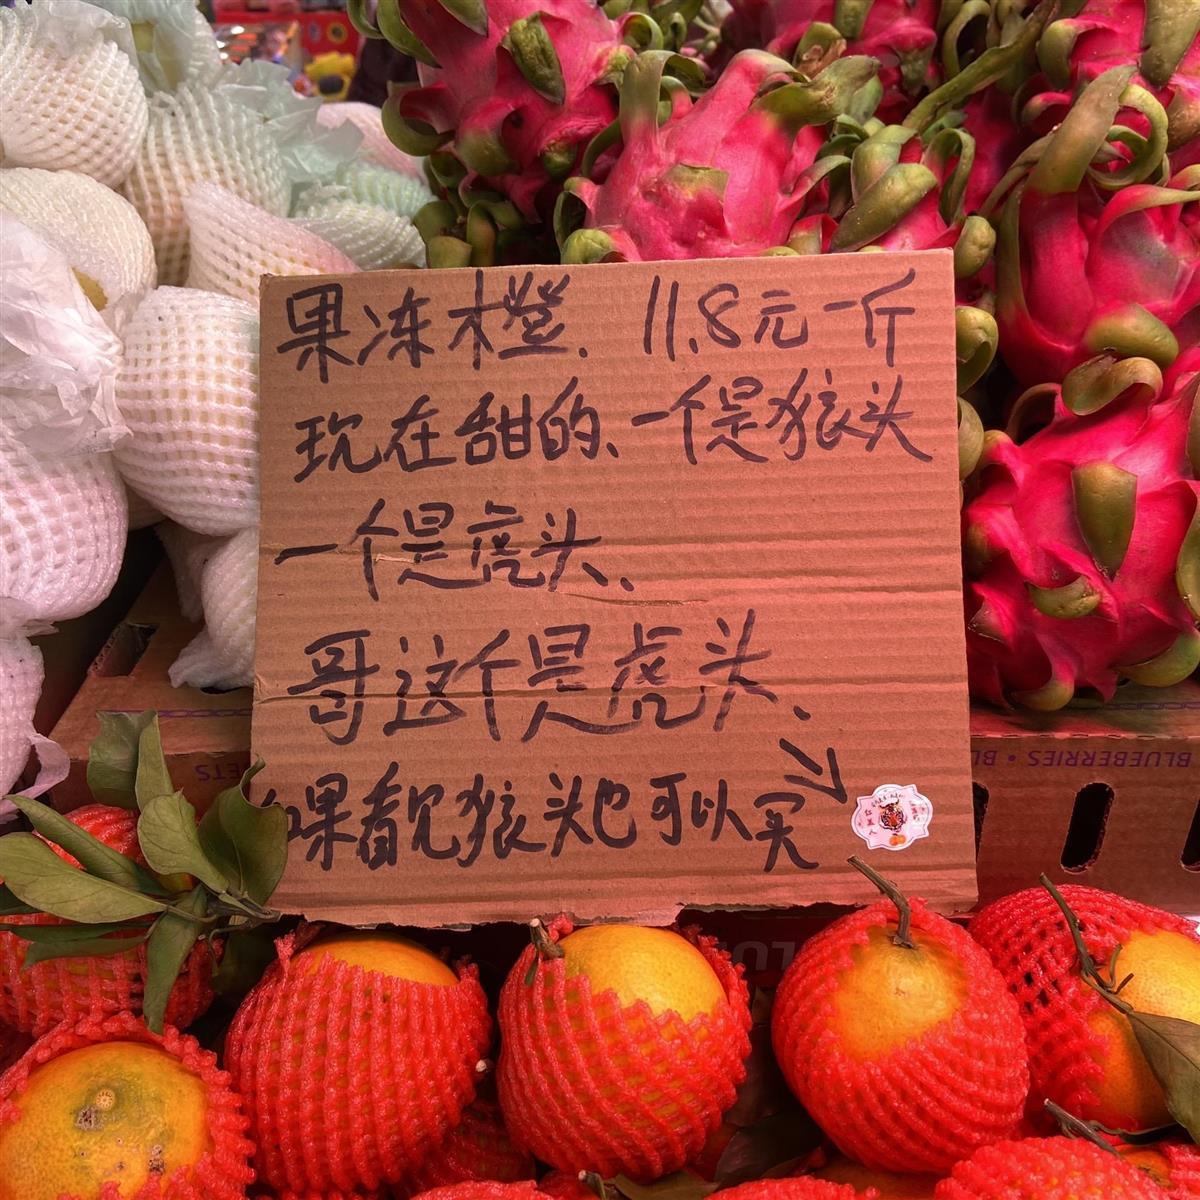 果冻橙、11.8元一斤
现在甜的、一个是狼头
一个是虎头、
哥这个是虎头、
如果看见狼头也可以买
BLUEBERRIES • BL
ETS